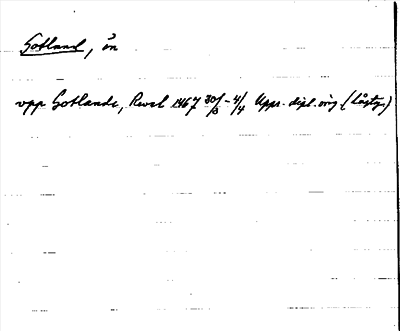 Gotland, ön
vpp Gotlande, Revel 1467 30/3-4/4 Uppr. dipl. orig (Låstg.)